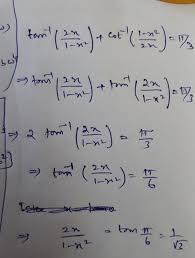 tan⁻¹(2x/(1-x²)) + cot⁻¹((1-x²)/2x) = π/3
⇒ tan⁻¹(2x/(1-x²)) + tan⁻¹(2x/(1-x²)) = π/3
⇒ 2 tan⁻¹(2x/(1-x²)) = π/3
⇒ tan⁻¹(2x/(1-x²)) = π/6
⇒ 2x/(1-x²) = tan π/6 = 1/√2